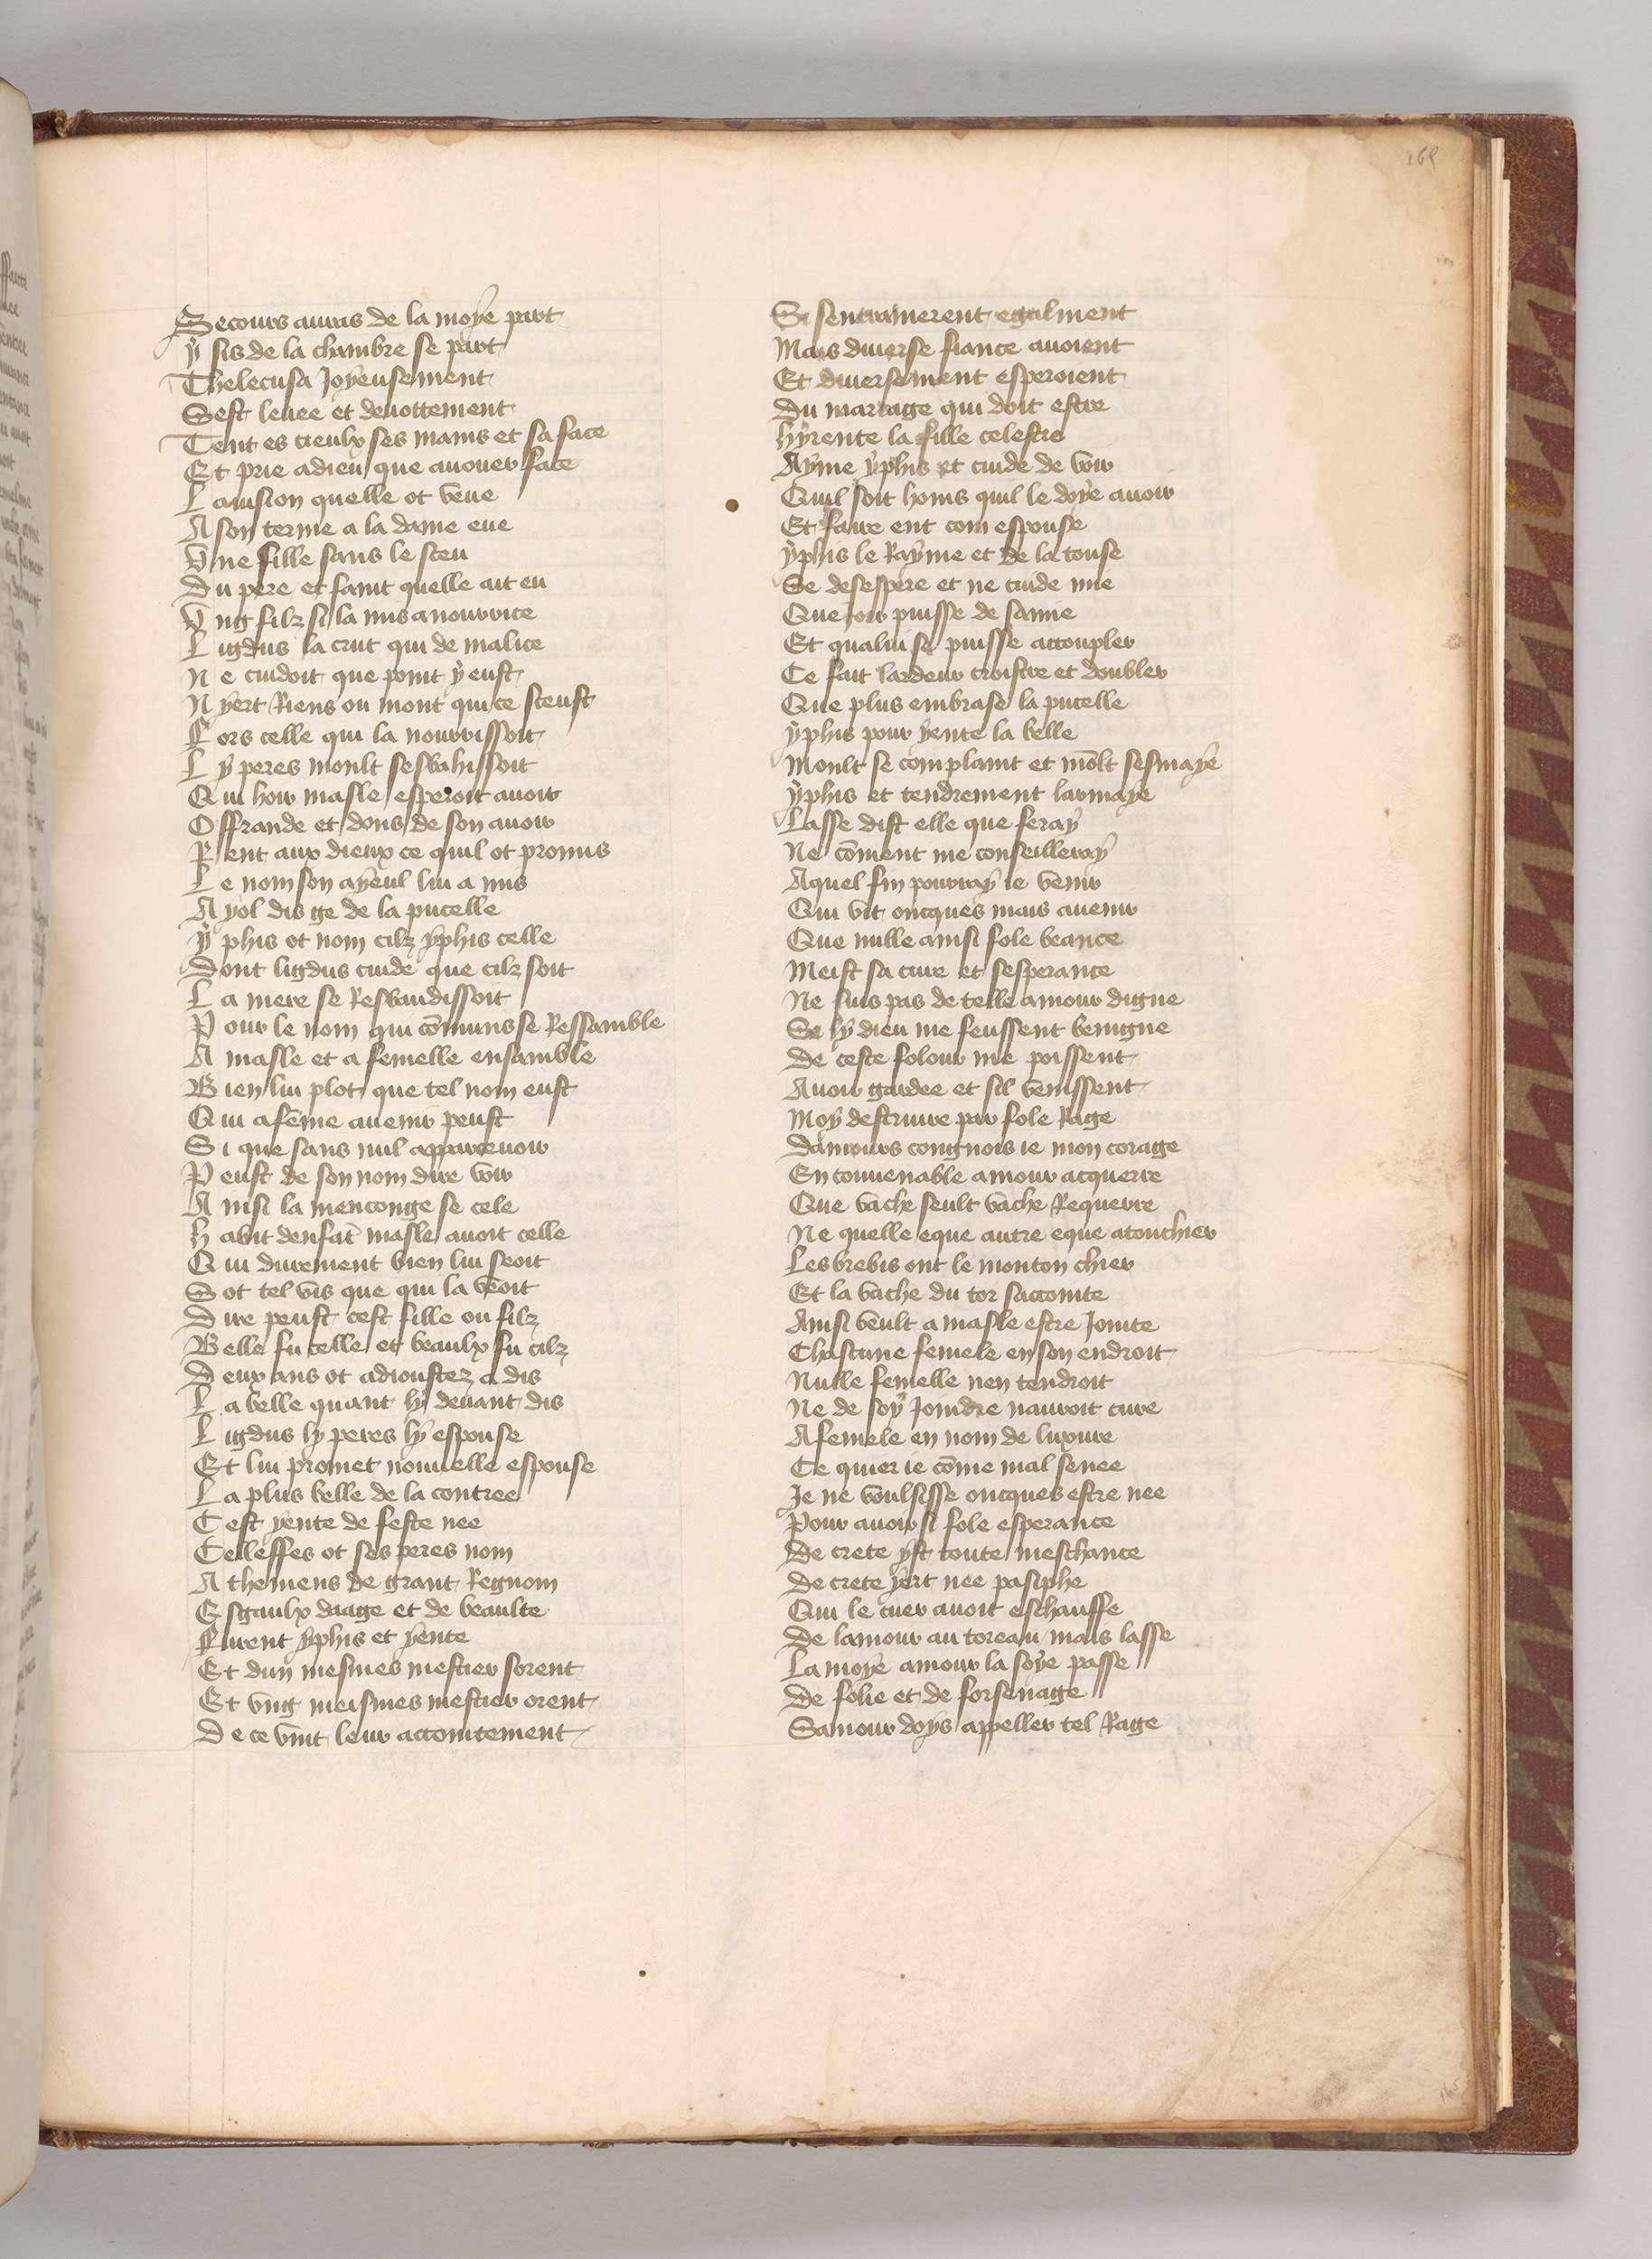 169
Secours auras de la moye part
Ysis de la chambre se part
Thelecusa Joyeusement
Sest leuee et deuottement
Tent es cieulx ses mains et sa face
Et prie adieu que auouer face
Lauision quelle ot veue
A son terme a la dame eue
Vne fille sans le sceu
Du pere et faint quelle ait eu
Vng filz si la mis a nourrice
Ligdus la crut qui de malice
Ne cuidoit que point y eust
Nyert Riens ou mont qui ce sceust
Fors celle qui la nourrissoit
Ly peres moult sesbahissoit
Qui hoir masle esperoit auoir
Offrande et dons de son auoir
Rent aux dieux ce quil ot promis
Le nom son ayeul lui a mis
Ayol dis ge de la pucelle
Yphis ot nom cilz yphis celle
Dont ligdus cuide que cilz soit
La mere se Resbaudissoit
Pour le nom qui cōmuns se Ressamble
A masle et a femelle ensamble
Bien lui plot que tel nom eust
Qui a fēme auenir peust
Si que sans nul apparceuoir
Peust de son nom dire voir
Ainsi la menconge se cele
habit denfāt masle auoit celle
Qui durement bien lui seoit
Sot tel vis que qui la veoit
Dire peust cest fille ou filz
Belle fu celle et beaulx fu cilz
Deux ans ot adioustez a dis
La belle quant ly deuant dis
Ligdus ly peres ly espouse
Et lui promet nouuelle espouse
La plus belle de la contree
Cest yente de feste nee
Celleffes ot ses peres nom
Athemens de grant Regnom
Esgaulx daage et de beaulte
Furent yphis et yente
Et dun mesmes mestier sorent
Et vng meismes mestier orent
De ce vint leur accointement
Si sentraimerent egalment
Mais diuerse fiance auoient
Et diuersement esperoient
Du mariage qui doit estre
hyrente la fille celestre
Ayme yphis et cuide de voir
Quil soit homs quil le doye auoir
Et faire ent com espouse
yphis le Rayme et de la touse
Se desespere et ne cuide mie
Que joir puisse de samie
Et qualui se puisse accoupler
Ce fait lardeur croistre et doubler
Que plus embrase la pucelle
yphis pour yente la belle
Moult se complaint et mōlt sesmaye
yphis et tendrement larmaye
Lasse dist elle que feray
Ne cōment me conseilleray
Aquel fin pourray ie venir
Qui vit oncques mais auenir
Que nulle ainsi fole beance
Meist sa cure et sesperance
Ne suis pas de telle amour digne
Se ly dieu me feussent benigne
De ceste folour me poissent
Auoir gardee et sil venissent
Moy destruire par fole Rage
Damours congnois ie mon corage
En conuenable amour acquerre
Que vache seult vache Requerre
Ne quelle eque autre eque atouchier
Les brebis ont le mouton chier
Et la vache du tor saccointe
Ainsi veult a masle estre Jointe
Chascune femele en son endroit
Nulle femelle nen tendroit
Ne de soy Joindre nauroit cure
A femele en nom de luxure
Ce quier ie cōme mal senee
Je ne voulsisse oncques estre nee
Pour auoir si fole esperance
De crete yst toute meschance
De crete yert nee pasiphe
Qui le cuer auoit eschauffe
De lamour au toreau mais lasse
La moye amour la soye passe
De folie et de forsenage
Samour doys appeller tel Rage